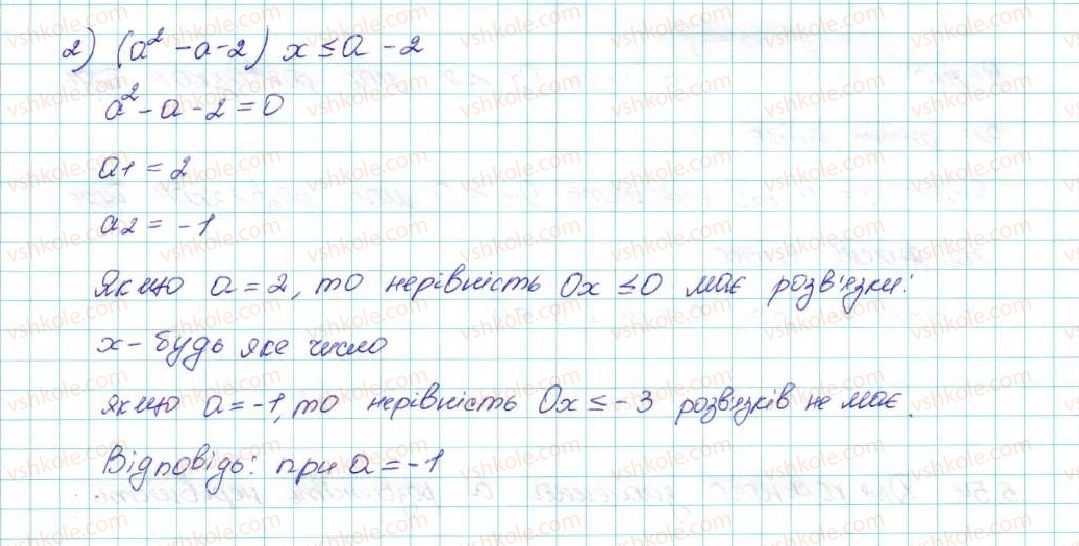 2) (a² - a - 2) x ≤ a - 2
a² - a - 2 = 0
a1 = 2
a2 = -1
Якщо a = 2, то нерівність 0x ≤ 0 має розв'язки:
x - будь яке число
якщо a = -1, то нерівність 0x ≤ - 3 розв'язків не має.
Відповідь: при a = -1
vshkole.com